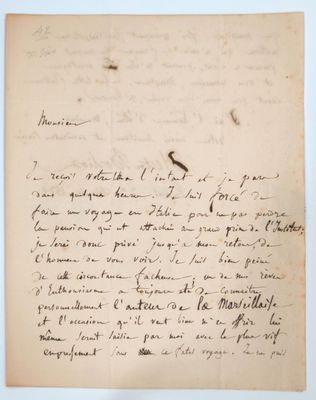 Monsieur
Je reçois votre lettre à l'instant et je pars
dans quelques heures. Je suis forcé de
faire un voyage en Italie pour ne pas perdre
la pension qui est attachée au grand prix de l'Institut;
je serai donc privé jusqu'à mon retour, de
l'honneur de vous voir. Je suis bien peiné
de cette circonstance fâcheuse; un de mes rêves
d'Enthousiasme a toujours été de connaître
personnellement l'auteur de la Marseillaise
et l'occasion qu'il veut bien m'en offrir lui
même serait saisie par moi avec le plus vif
empressement sans ce fatal voyage. Je ne puis